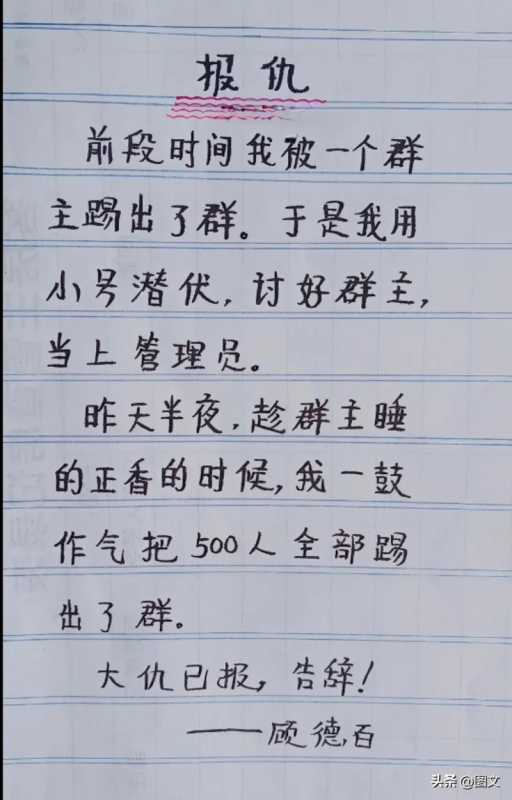 报仇
前段时间我被一个群
主踢出了群。于是我用
小号潜伏,讨好群主,
当上管理员。
昨天半夜,趁群主睡
的正香的时候,我一鼓
作气把500人全部踢
出了群。
大仇已报,告辞!
——顾德.百
头条 @图文